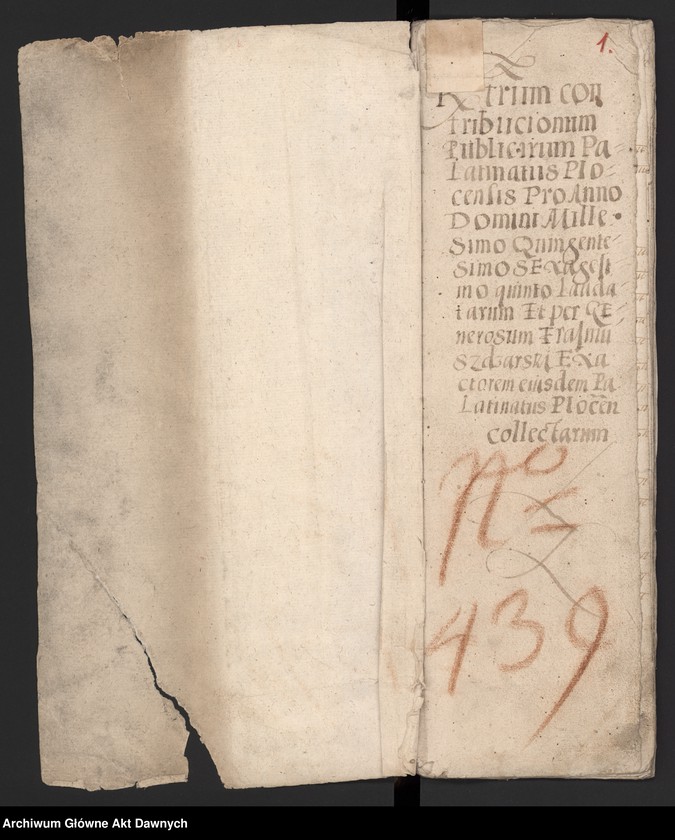 1.
Rx̅trum con
tribucionum
Publicarum Pa-
Latinatus Plo-
censis Pro Anno
Domini Mille
Simo Quingente-
Simo SExagesi
mo quinto Lauda
tarum Et per GE-
nerosum Erasmu
Exa
ctorem eiusdem Pa
Latinatus Plocen̅
collectarum
No
439
Archiwum Główne Akt Dawnych